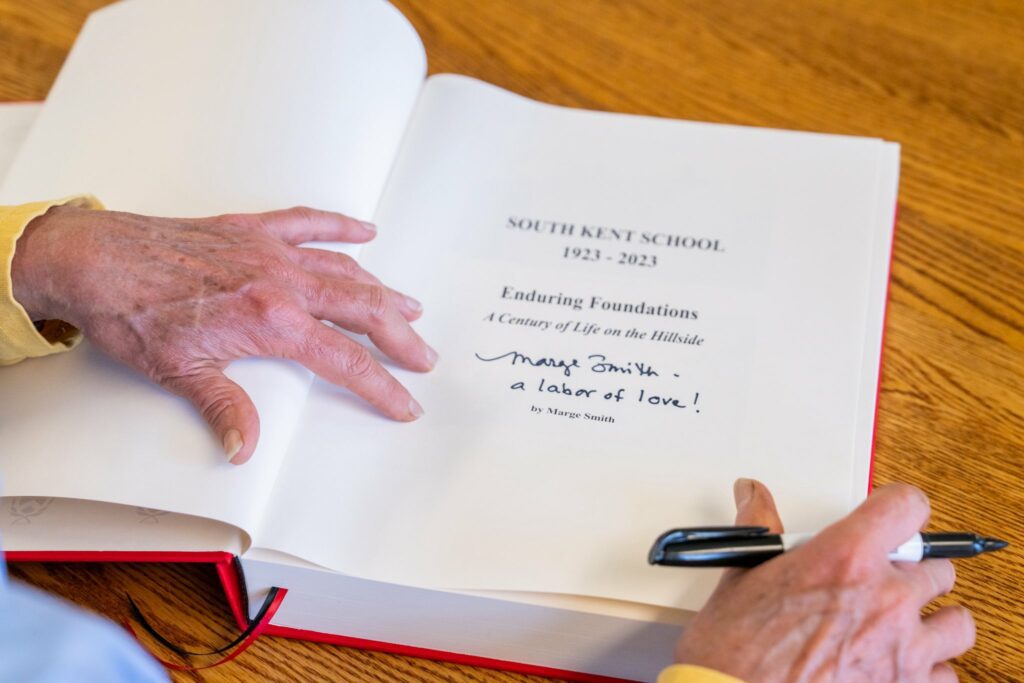 SOUTH KENT SCHOOL
1923 - 2023
Enduring Foundations
A Century of Life on the Hillside
Marge Smith -
a labor of love!
by Marge Smith